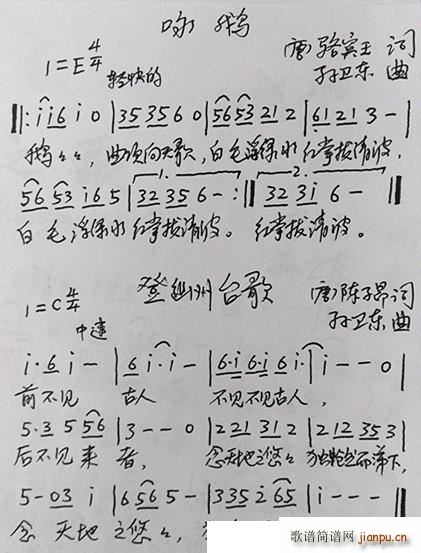 咏 鹅
1=E 4/4
轻快的
(唐)骆宾王 词
孙卫东 曲
‖: i i 6 i 0 | 35 35 6 0 | 56 53 21 2 | 61 21 3 - |
鹅々々，曲项向天歌，白毛浮绿水 红掌拨清波，
1. 2.
56 53 i6 5 | 32 35 6 - :‖ 32 3i 6 - ‖
白毛浮绿水 红掌拨清波。 红掌拨清波。
登幽州台歌
1=C 4/4
中速
(唐)陈子昂 词
孙卫东 曲
i·6 i - | 6 i·i - | 6·i 6·i 6i· | i - - 0 |
前不见 古人 不见不见古人，
5·3 5 56 | 3 - - 0 | 2 21 31 2 | 2 12 35 3 |
后不见 来 者， 念天地之悠々 独怆然而涕下，
5 - 03 i | 6 56 5 - | 3 35 2 65 | i - - - |
念 天地 之悠々，
歌谱简谱网
jianpu.cn